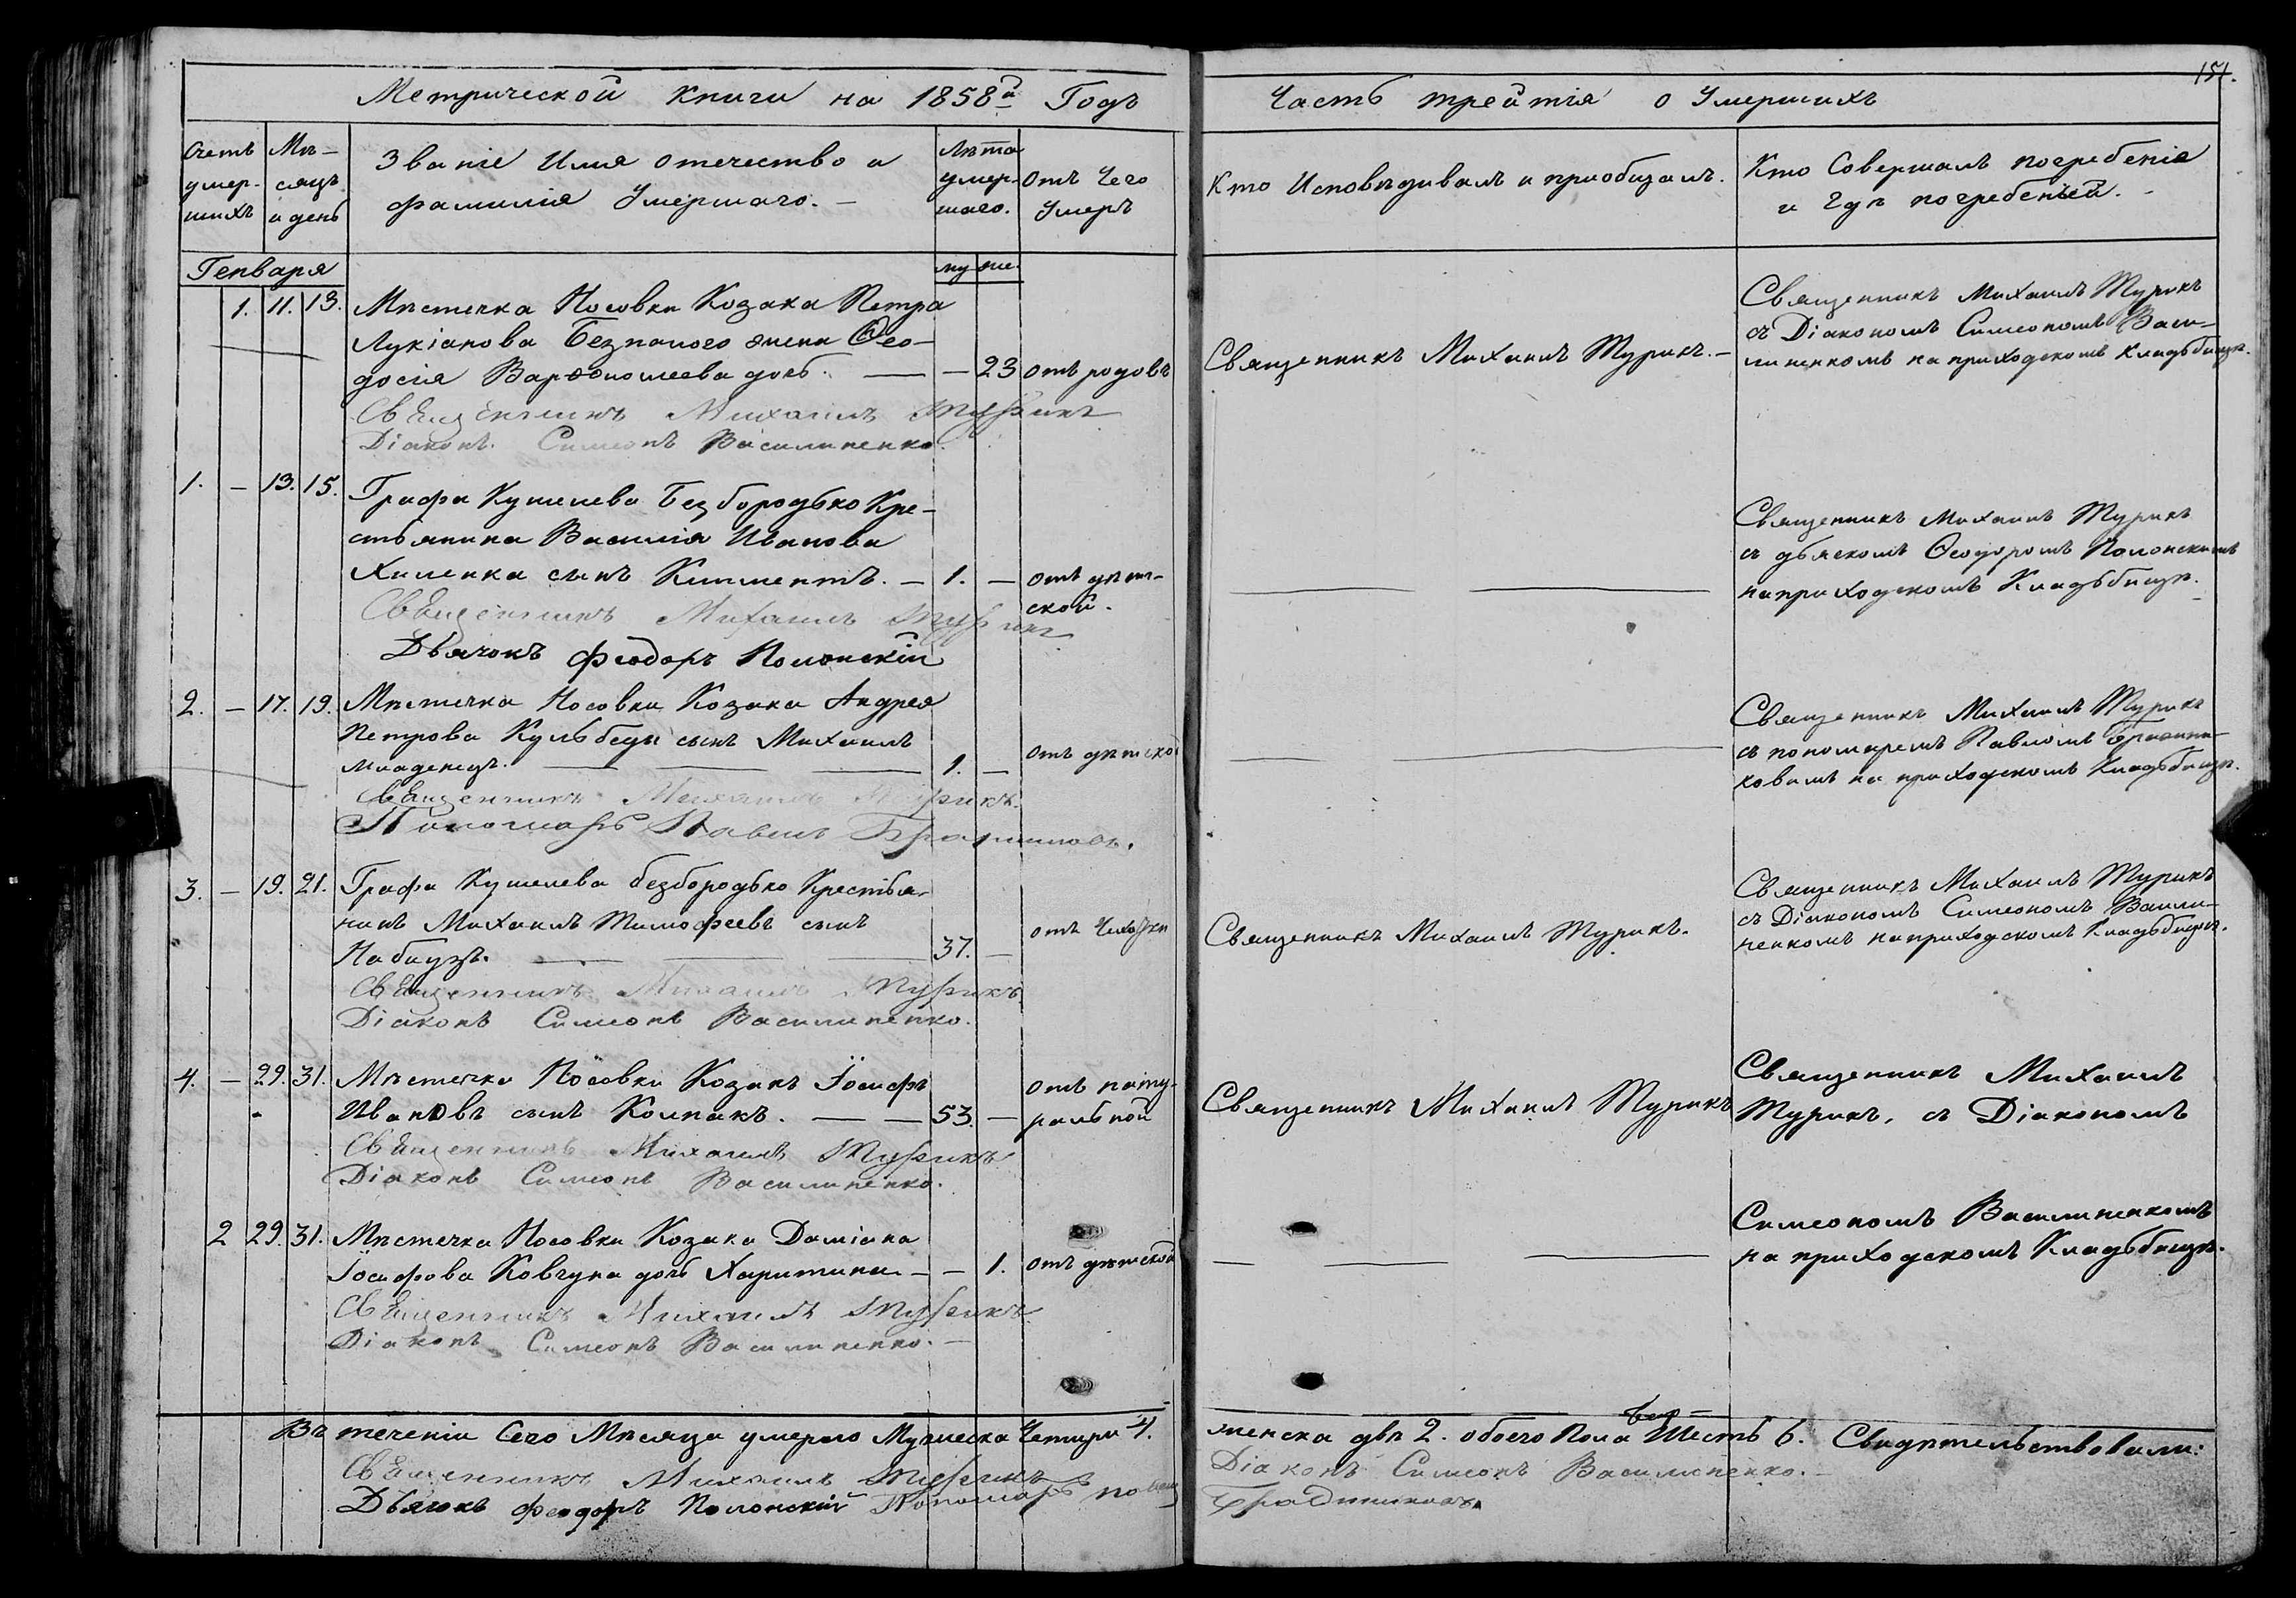 Метрической книги на 1858й Годъ
Счетъ умер- шихъ
Мѣ- сяцъ и день
Званіе Имя отечество и
фамилія Умершаго. -
Лѣта умер- шаго.
Отъ Чего Умеръ
Генваря
му же.
1. 11. 13. Мѣстечка Носовки Козака Петра
Лукіанова Безпалого жена Ѳео-
досія Варѳоломеева дочь. — — 23 отъ родовъ
Священникъ Михаилъ Турикъ
Діаконъ Симеонъ Василиненко.
1. — 13. 15. Графа Кушелева Безбородько Кре-
стьянина Василія Иванова
Хиленка сынъ Климентъ. — 1. — отъ дѣт-
ской.
Священникъ Михаилъ Турикъ
Дьячокъ Феодоръ Полонскій
2. — 17. 19. Мѣстечка Носовки Козака Андрея
Петрова Кульбеды сынъ Михаилъ
младенецъ. — — — 1. — отъ дѣтской
Священникъ Михаилъ Турикъ.
Пономарь Павелъ
3. — 19. 21. Графа Кушелева безбородько Крестья-
нинъ Михаилъ Тимофеевъ сынъ
Набицъ. — — 37. — отъ Чихотки
Священникъ Михаилъ Турикъ
Діаконъ Симеонъ Василиненко.
4. — 29. 31. Мѣстечка Носовки Козакъ Іосифъ
Ивановъ сынъ Колпакъ. — — 53. — отъ нату-
ральной
Священникъ Михаилъ Турикъ
Діаконъ Симеонъ Василиненко.
2 29. 31. Мѣстечка Носовки Козака Даміана
Іосифова Ковтуна дочь Харитина — — 1. отъ дѣтской
Священникъ Михаилъ Турикъ
Діаконъ Симеонъ Василиненко. —
Въ теченіи Сего Мѣсяца умерло Мужеска Четыри 4.
Священникъ Михаилъ Турикъ
Дьячокъ Феодоръ Полонскій Пономарь Павелъ
151.
Часть трейтія о Умершихъ
Кто Исповѣдивалъ и приобщалъ.
Кто Совершалъ погребенія
и Гдѣ погребенъ. -
Священникъ Михаилъ Турикъ. —
Священникъ Михаилъ Турикъ
съ Діакономъ Симеономъ Васи-
линенкомъ на приходскомъ кладьбищѣ.
Священникъ Михаилъ Турикъ
съ дьячкомъ Ѳеодоромъ Полонскимъ
на приходскомъ Кладьбищѣ.
Священникъ Михаилъ Турикъ
съ пономаремъ Павломъ
на приходскомъ Кладьбищѣ.
Священникъ Михаилъ Турикъ.
Священникъ Михаилъ Турикъ
съ Діакономъ Симеономъ Васили-
ненкомъ на приходскомъ Кладьбищѣ.
Священникъ Михаилъ Турикъ
Священникъ Михаилъ
Турикъ, съ Діакономъ
Симеономъ Василиненкомъ
на приходскомъ Кладьбищѣ.
женска двѣ 2. обоего Пола Шесть 6. Свидѣтельствовали:
Діаконъ Симеонъ Василиненко. —